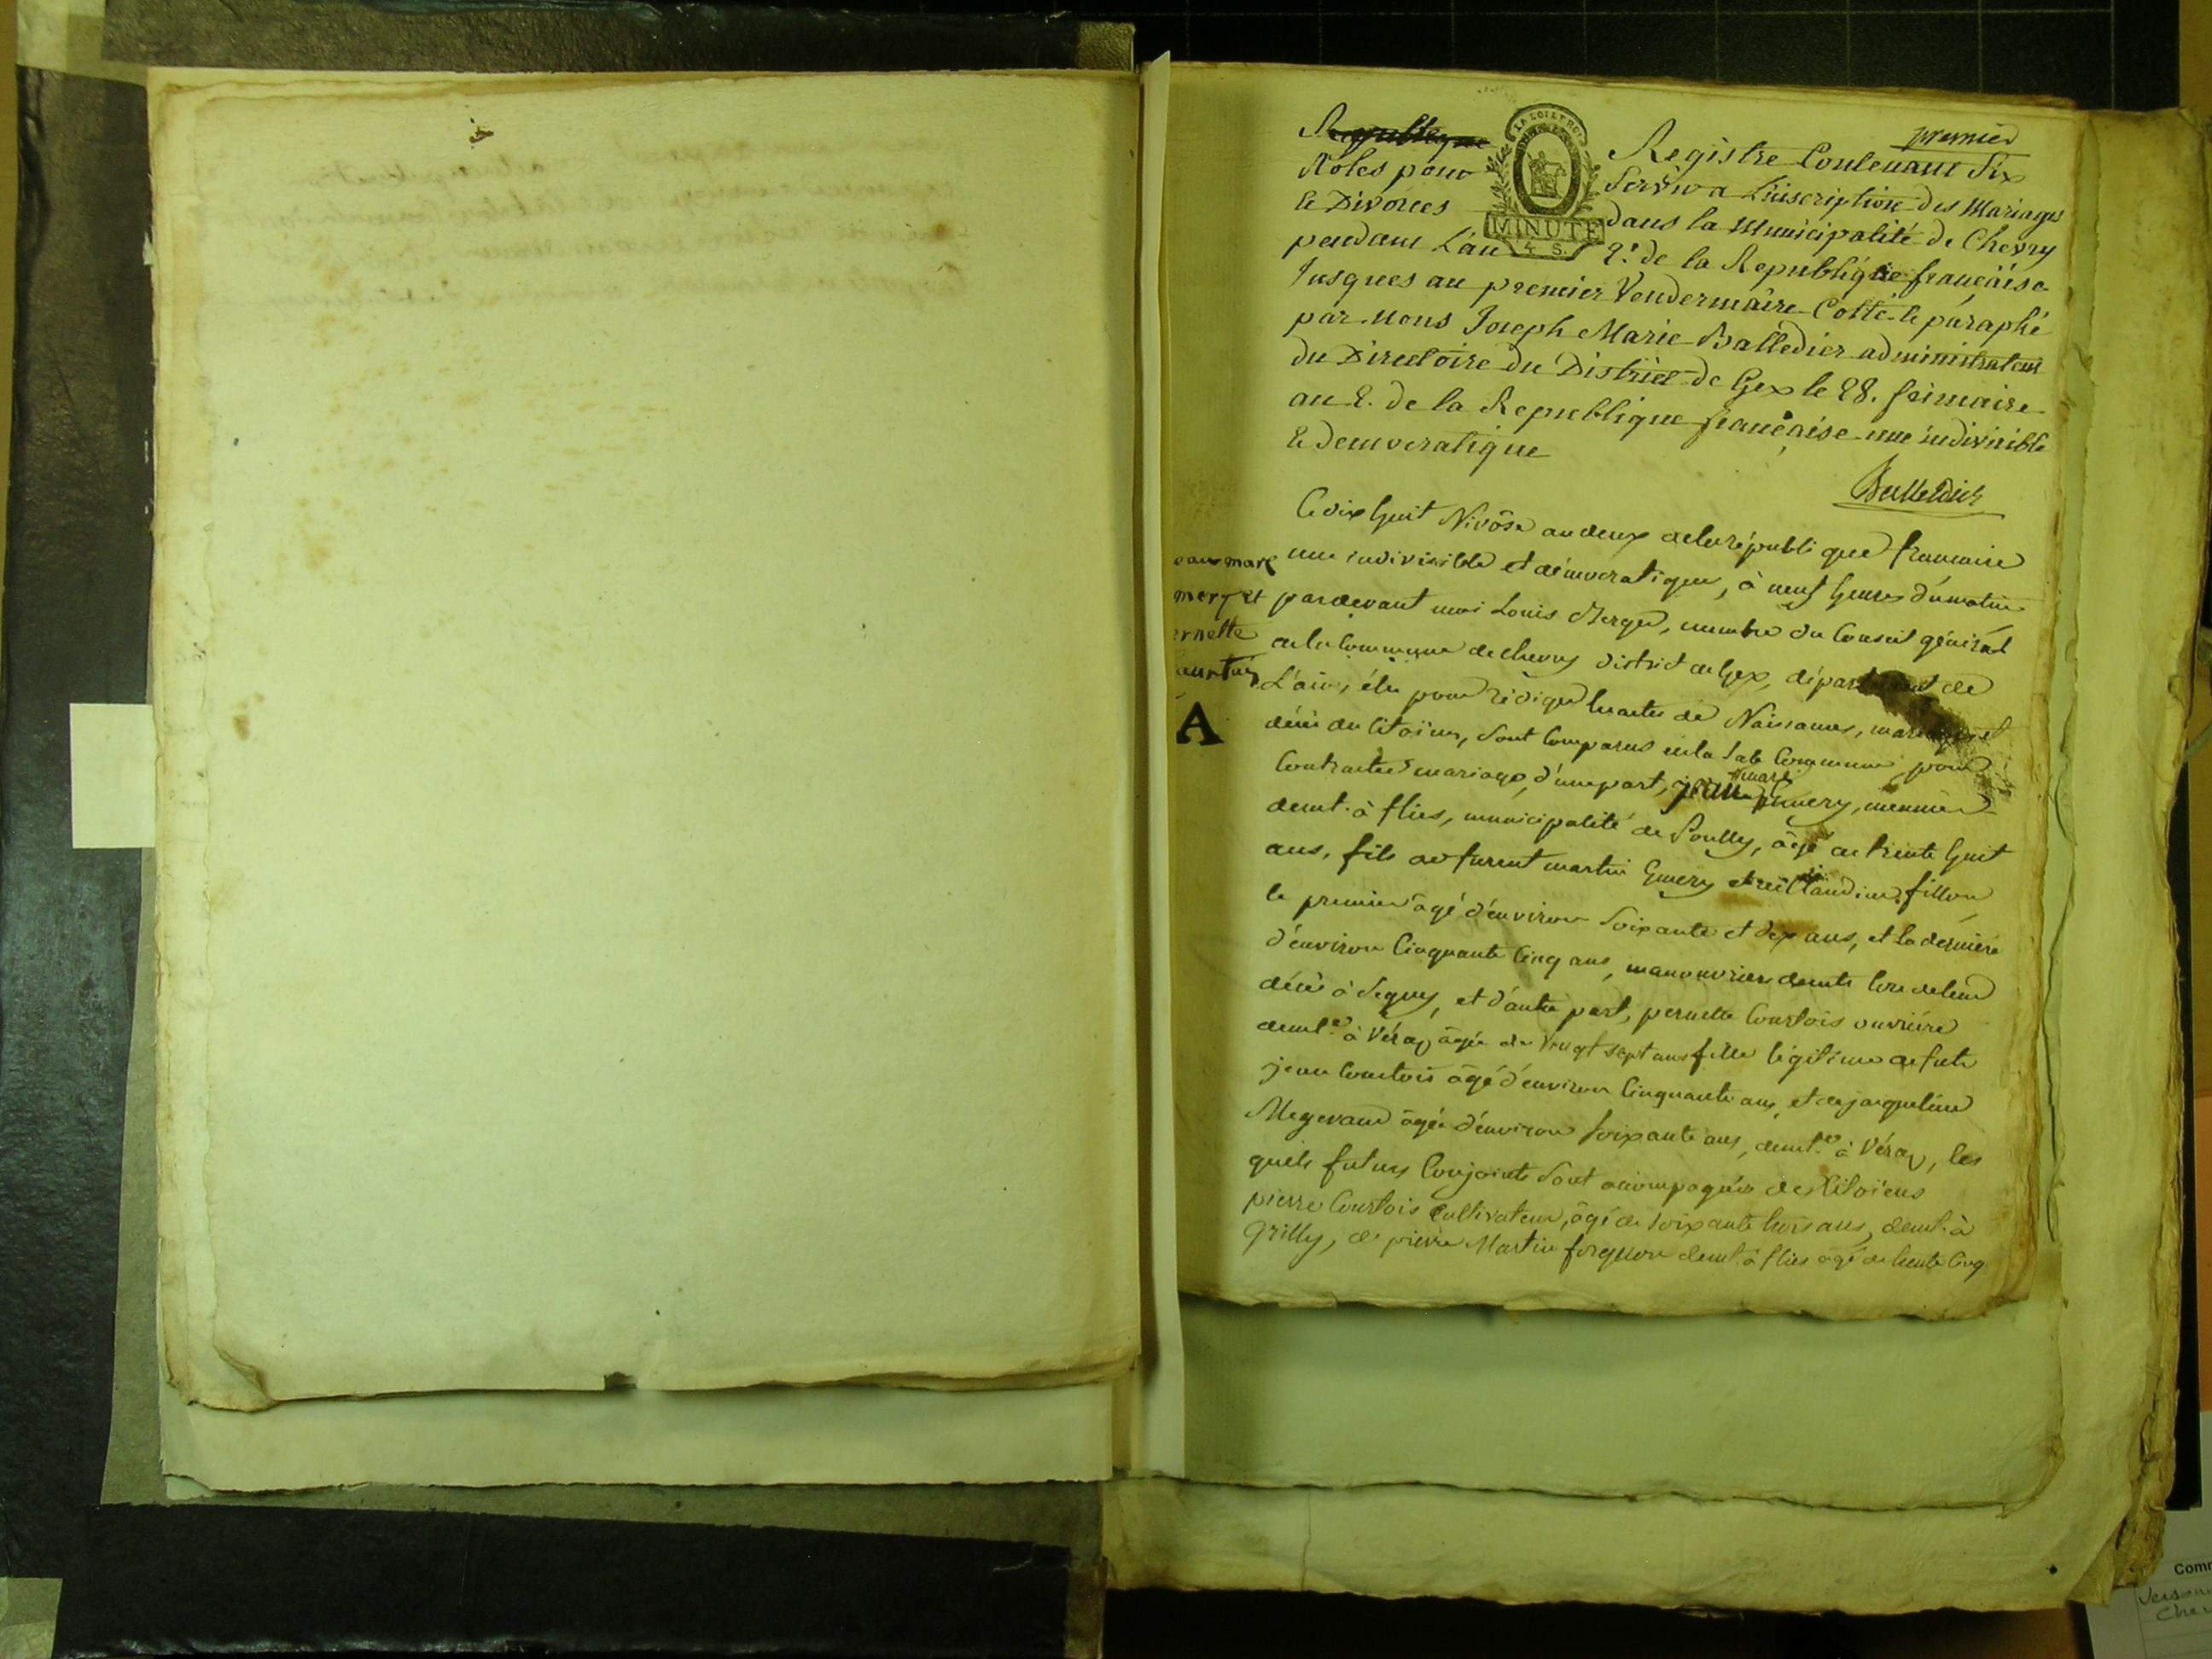 premier
Registre Contenant Six
Rôles pour Servir a L'inscription des Mariages
& Divorces dans la Municipalité de Chevry
pendant L'an 2.e de la Republique françaisе
Jusques au premier Vendermiaire Cotté & paraphé
par nous Joseph Marie Balledier administrateur
du Directoire du District de Gex le 28. frimaire
an 2. de la Republique française une indivisible
& democratique
Balleidier
LA LOI LE ROI
MINUTE
4 S.
Ce dix huit Nivôse an deux de la république francaise
une indivisible et démocratique, à neuf heures du matin
pardevant moi Louis Merger, membre du Conseil général
de la Commune de chevry district de Gex, département de
L'ain, élu pour rédiger les actes de Naissances, mariages et
décès des Citoïens, sont Comparus en la sale Commune pour
Contracter mariage, d'une part, jean marc Emery, meunier
demt. à flies, municipalité de Pouilly, âgé de trente huit
ans, fils de furent martin Emery et de Claudine fillon
le premier âgé d'environ soixante et dix ans, et la derniere
d'environ Cinquante Cinq ans, manouvriers demts lors de leur
décès à Segny, et d'autre part, pernette Courtois ouvriére
demte. à Véraz âgée de Vingt sept ans fille légitime de fut
jean Courtois âgé d'environ Cinquante ans, et de jacqueline
Megevand âgée d'environ soixante ans, demte. à Véraz, les
quels futurs Conjoints sont accompagnés des Citoïens
pierre Courtois Cultivateur, âgé de soixante trois ans, demt. à
Grilly, de pierre Martin forgeron demt. à flies âgé de trente Cinq
ean marc
mery et
ernette
ourtois
A
Comm
Cher